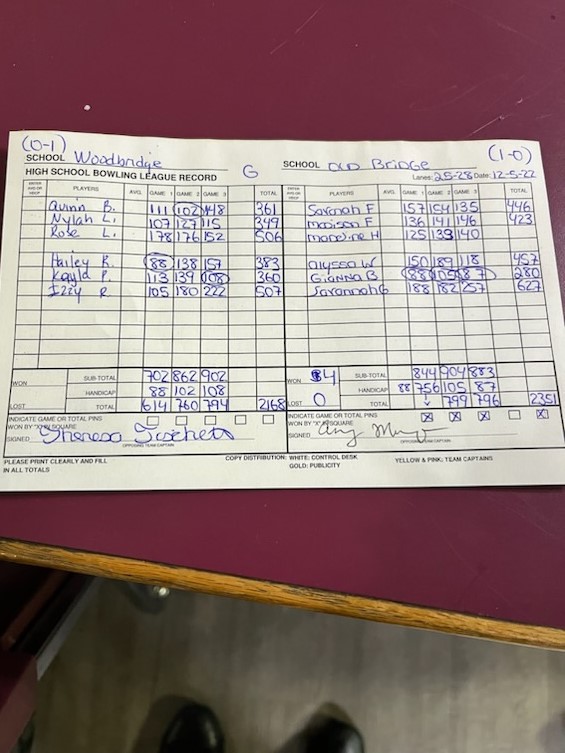 (0-1) (1-0)
SCHOOL Woodbridge G SCHOOL OLD Bridge
HIGH SCHOOL BOWLING LEAGUE RECORD Lanes: 25-28 Date: 12-5-22
ENTER AVG OR HDCP PLAYERS AVG. GAME 1 GAME 2 GAME 3 TOTAL ENTER AVG OR HDCP PLAYERS AVG. GAME 1 GAME 2 GAME 3 TOTAL
Quinn B. 111 102 148 361 Savanah F 157 154 135 446
Nylah L. 107 127 115 349 Madison F 136 141 146 423
Rose L. 178 176 152 506 Madeline H 125 133 140
Hailey R. 88 138 157 383 Alyssa W 150 189 118 457
Kayla P. 113 139 108 360 Gianna B 88 105 87 280
Izzy R 105 180 222 507 Savannah G 188 182 257 627
WON SUB-TOTAL 702 862 902 WON 4 SUB-TOTAL 844 904 883
HANDICAP 88 102 108 HANDICAP 88 756 105 87
LOST TOTAL 614 760 794 2168 LOST 0 TOTAL 799 796 2351
INDICATE GAME OR TOTAL PINS WON BY "X" IN SQUARE INDICATE GAME OR TOTAL PINS WON BY "X" IN SQUARE X X X X
SIGNED Theresa OPPOSING TEAM CAPTAIN SIGNED Amy OPPOSING TEAM CAPTAIN
PLEASE PRINT CLEARLY AND FILL IN ALL TOTALS COPY DISTRIBUTION: WHITE: CONTROL DESK YELLOW & PINK: TEAM CAPTAINS
GOLD: PUBLICITY